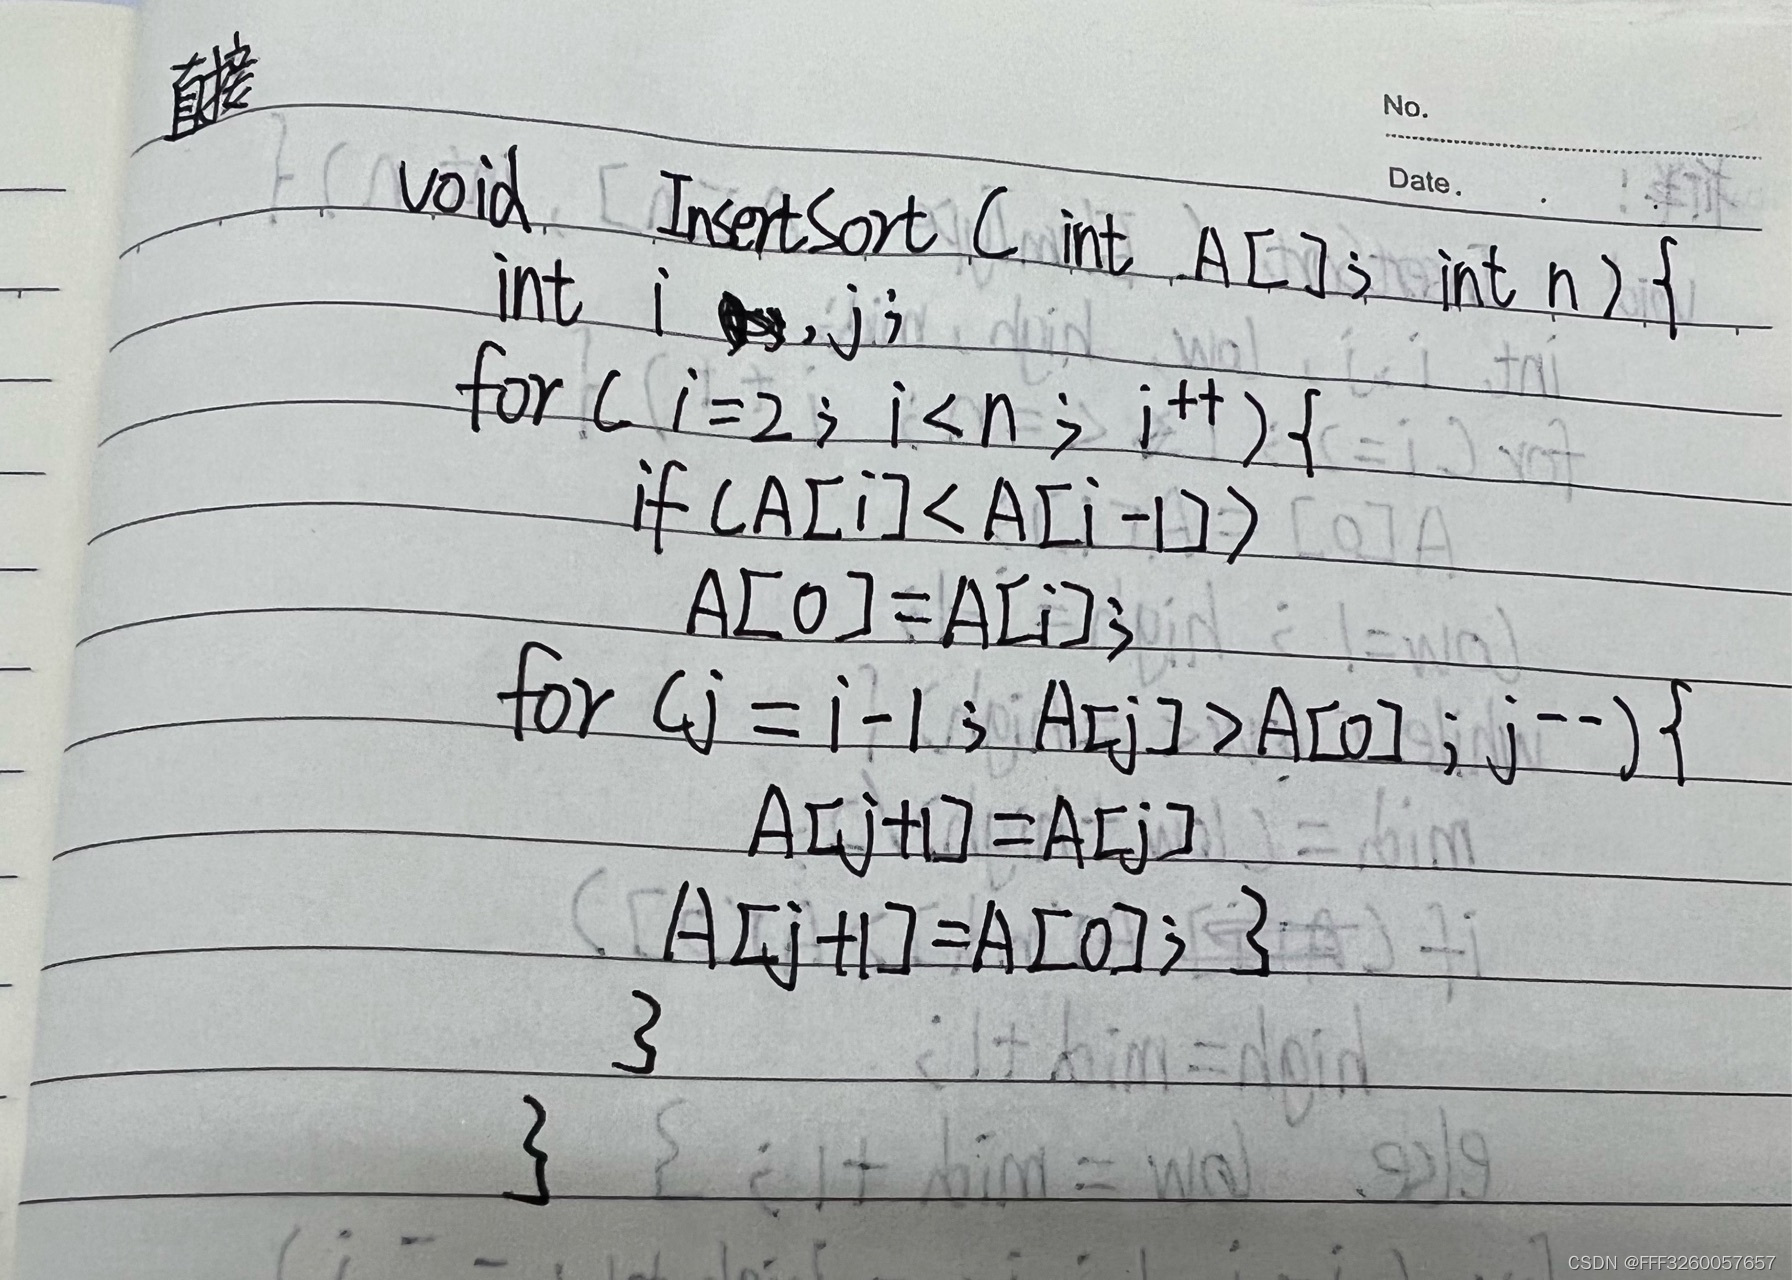 直接
No.
Date.
void InsertSort ( int A[]; int n ) {
int i , j;
for ( i=2; i<n; i++ ) {
if (A[i]<A[i-1])
A[0]=A[i];
for (j=i-1; A[j]>A[0]; j--) {
A[j+1]=A[j]
A[j+1]=A[0]; }
}
}
CSDN @FFF3260057657